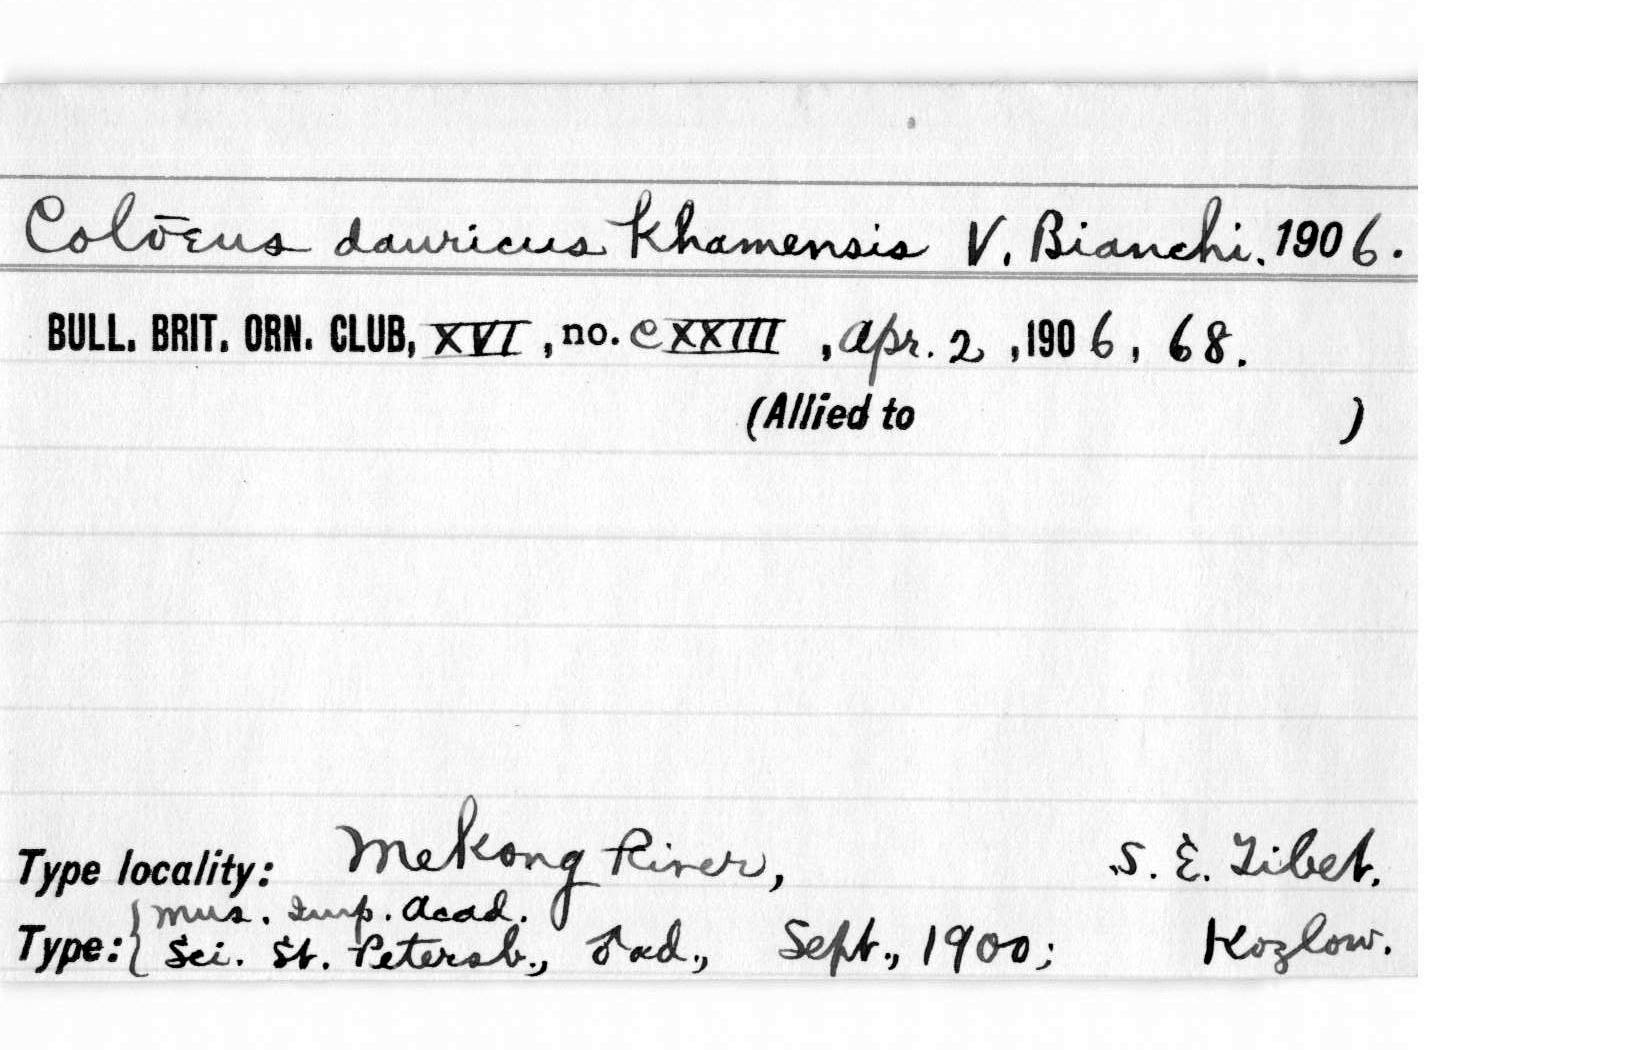 Colōeus dauricus khamensis V. Bianchi. 1906.
BULL. BRIT. ORN. CLUB, XVI, no. CXXIII, Apr. 2, 1906, 68.
(Allied to )
Type locality: Mekong River, S. E. Tibet.
Type: { Mus. Imp. Acad.
Sci. St. Petersb., ♂ ad., Sept., 1900; Kozlow.